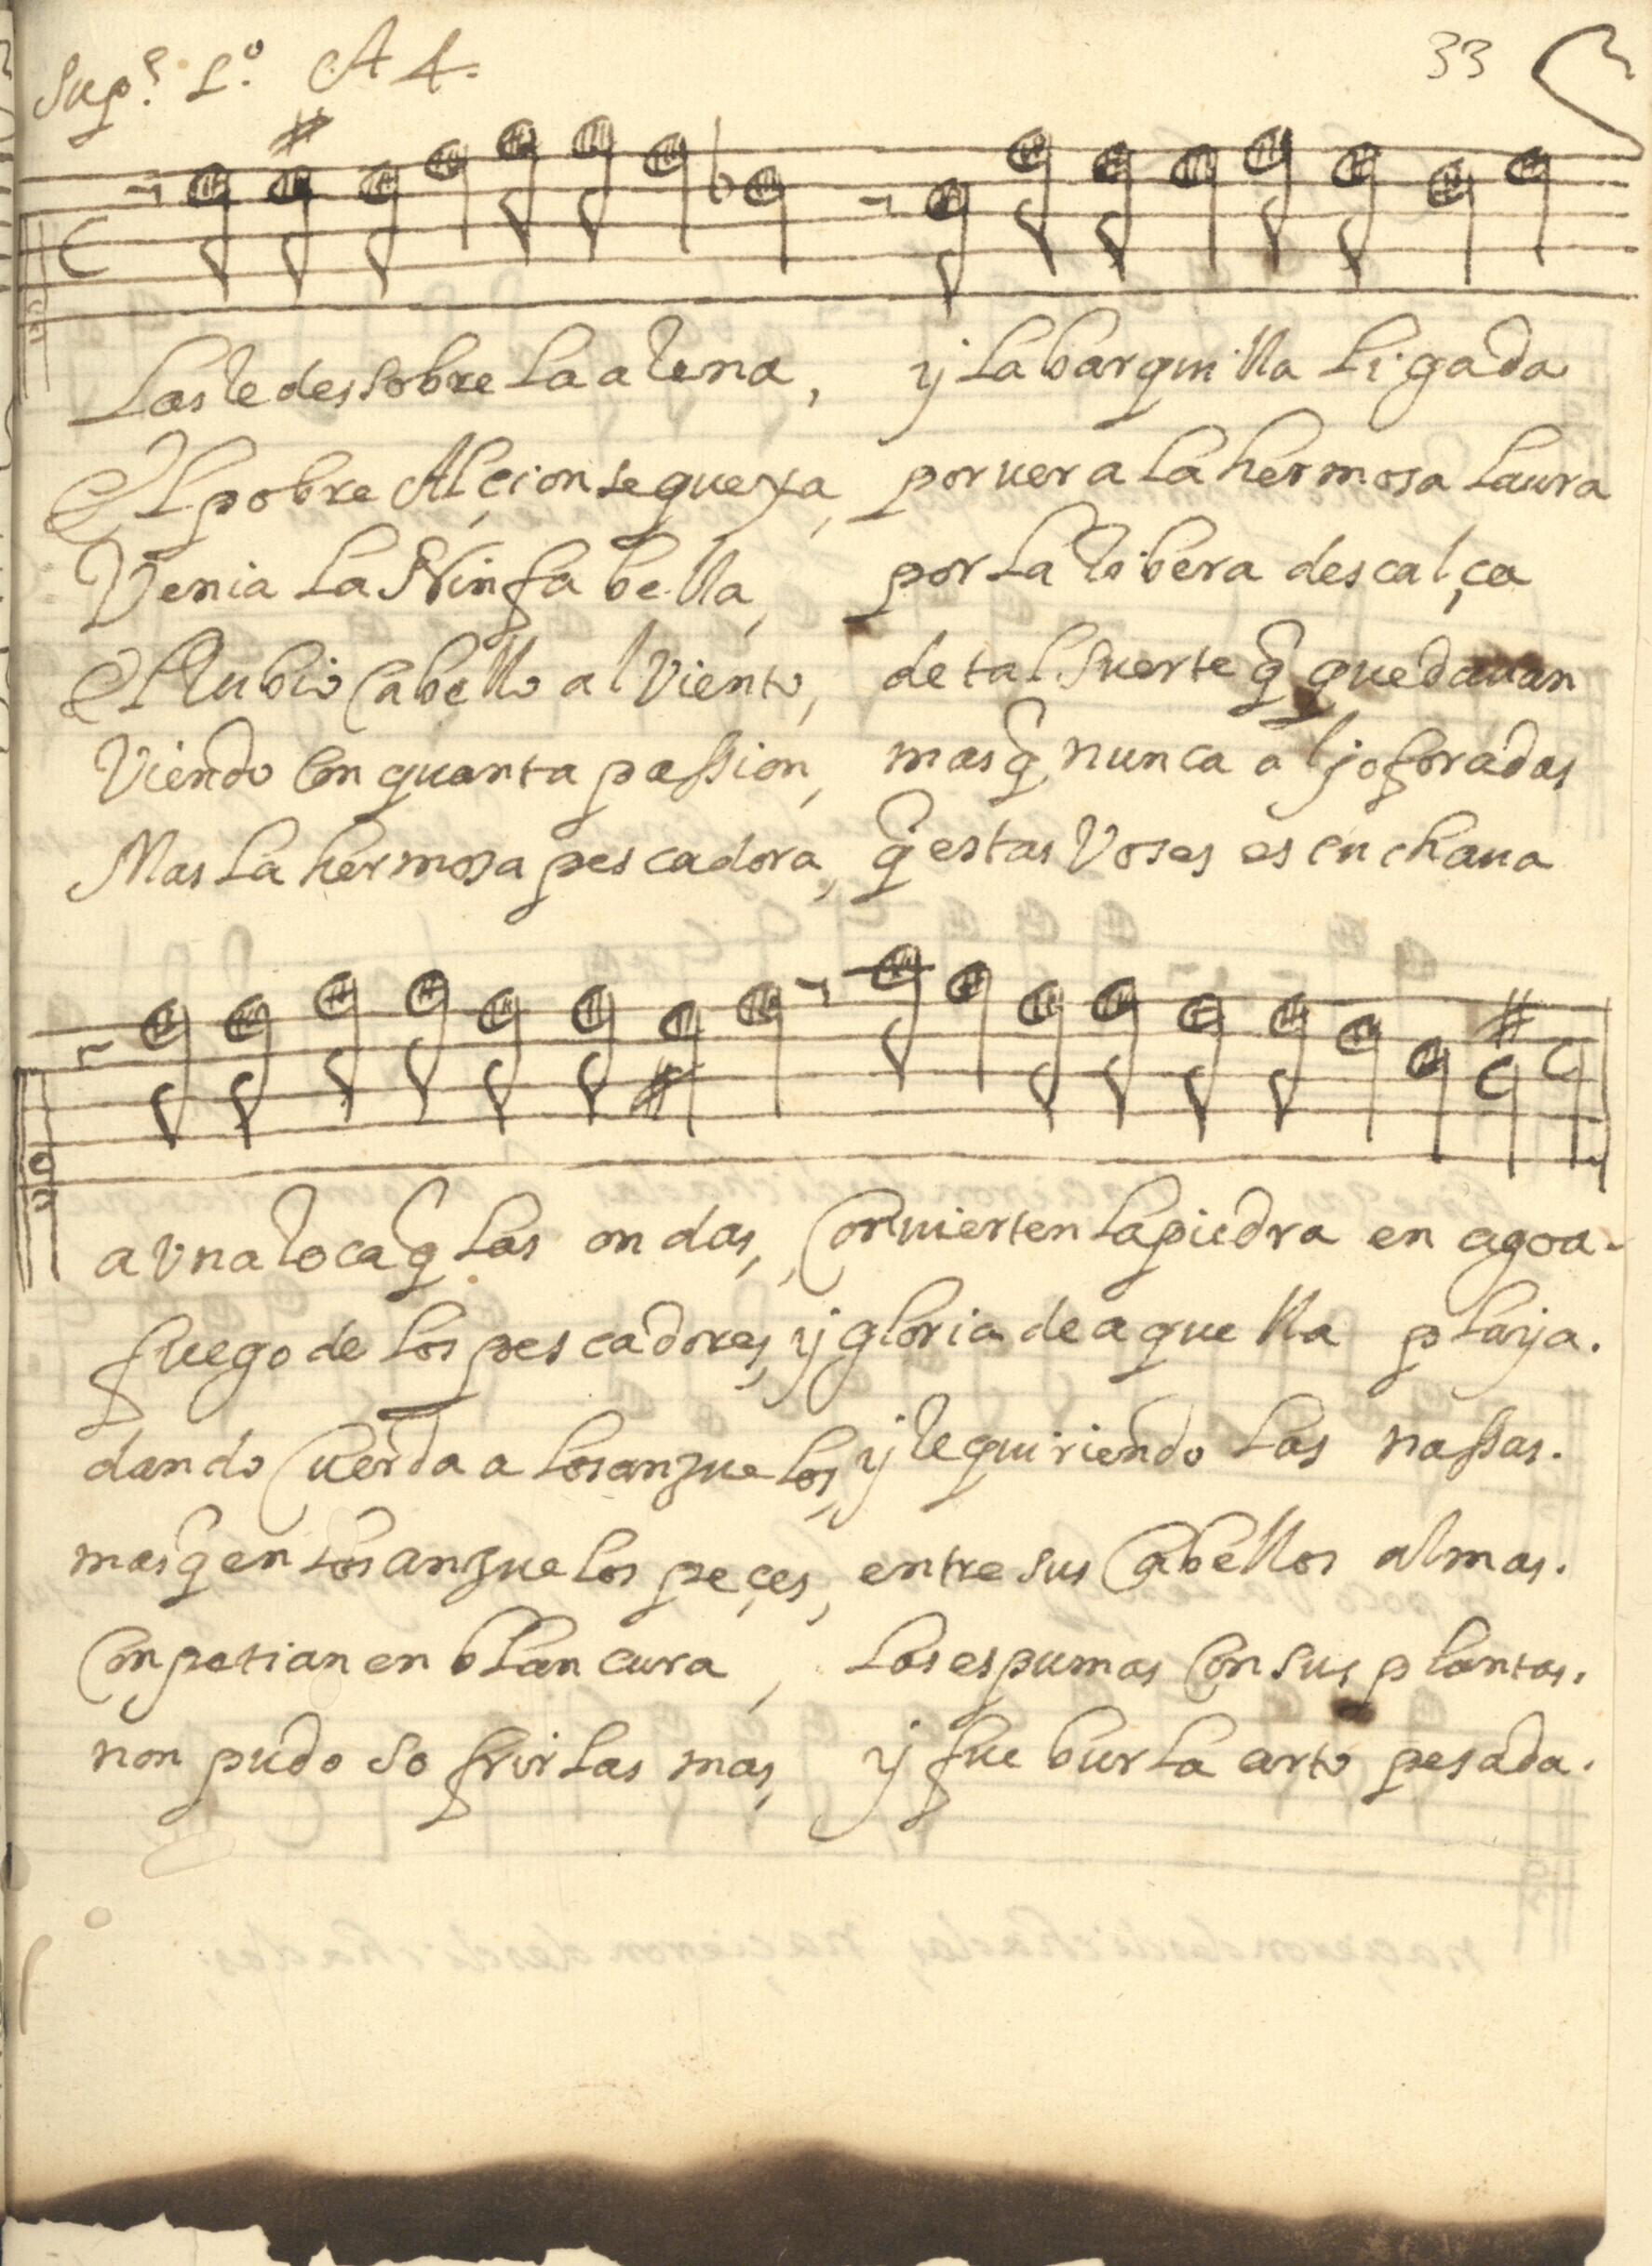 Supe. 1.º A 4. 33
Las redes sobre la arena, y la barquilla ligada
El pobre Alçion se quexa, por ver a la hermosa Laura
Venia la Ninfa bella, por la ribera descalça
El Rubio Cabello al Viento, de tal suerte q̃ quedauan
Viendo Con quanta passion, mas q̃ nunca aljofradas
Mas la hermosa pescadora, q̃ estas Voses escuchaua
a vna roca q̃ las ondas, Conuierten la piedra en agoa.
fuego de los pescadores, y gloria de aquella playa.
dando Cuerda a los anzuelos, y requiriendo las nassas.
mas q̃ en los anzuelos peçes, entre sus Cabellos almas.
Conpetian en blancura, las espumas Con sus plantas.
non pudo sofrirlas mas, y fue burla arto pesada.